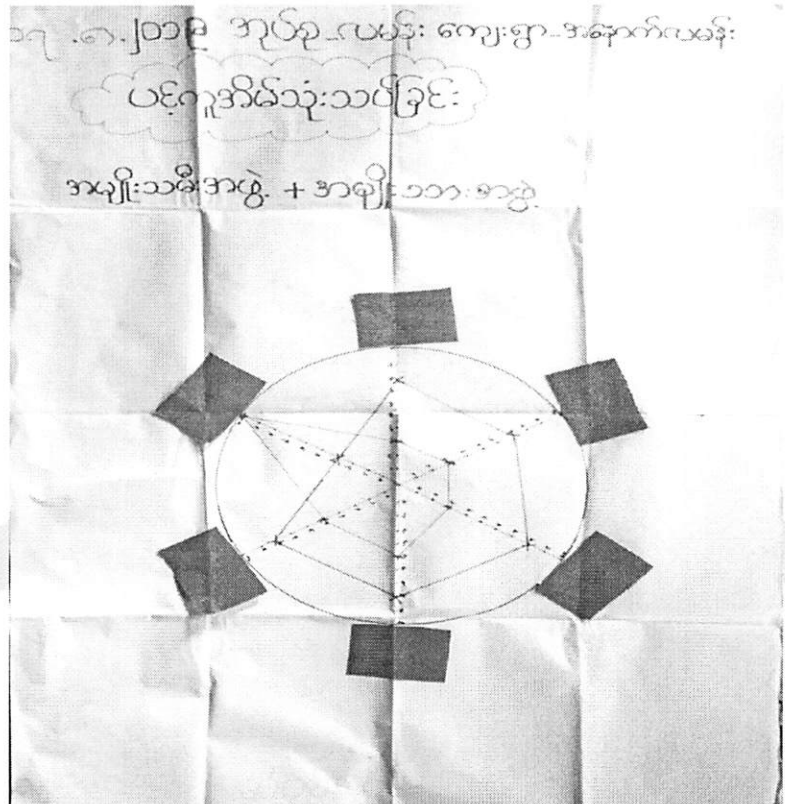 ၁၇.၈.၂၀၁၉ အုပ်စု_လမန်း ကျေးရွာ_အနောက်လမန်း
ပင့်ကူအိမ်သုံးသပ်ခြင်း
အမျိုးသမီးအဖွဲ့ + အမျိုးသားအဖွဲ့